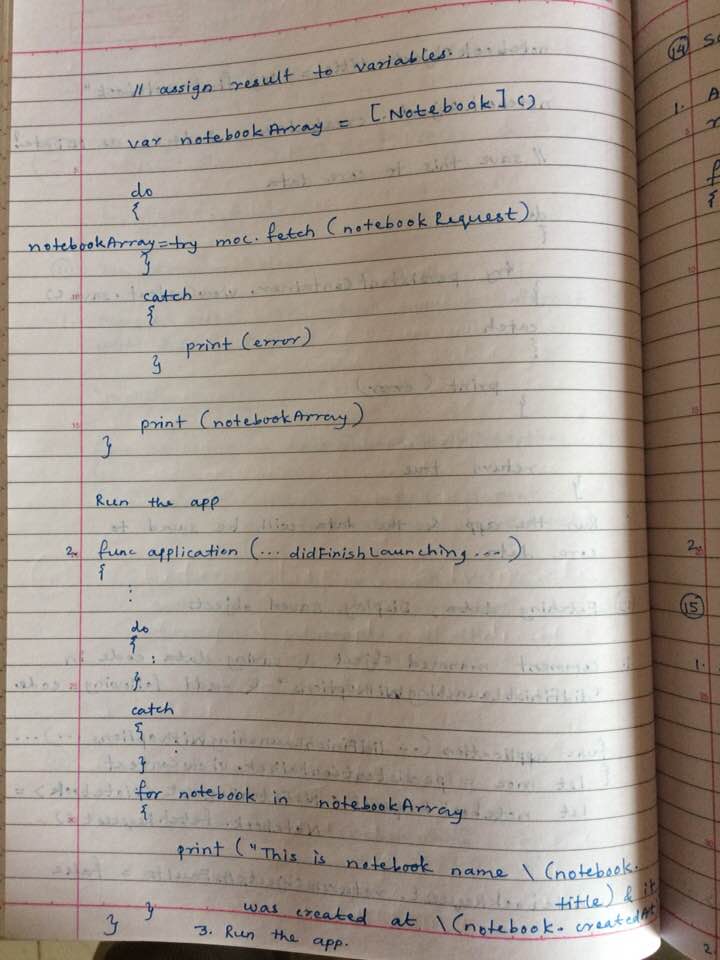 // assign result to variables.
var notebookArray = [Notebook]()
do
{
notebookArray=try moc.fetch (notebookRequest)
}
catch
{
print (error)
}
print (notebookArray)
}
Run the app
2. func application (... didFinishLaunching ...)
{
:
do
{
:
}
catch
{
:
}
for notebook in notebookArray
{
print ("This is notebook name \ (notebook.
title) & it
was created at \(notebook. createdAt
}
}
3. Run the app.
14
1.
{
2.
15
1.
2.